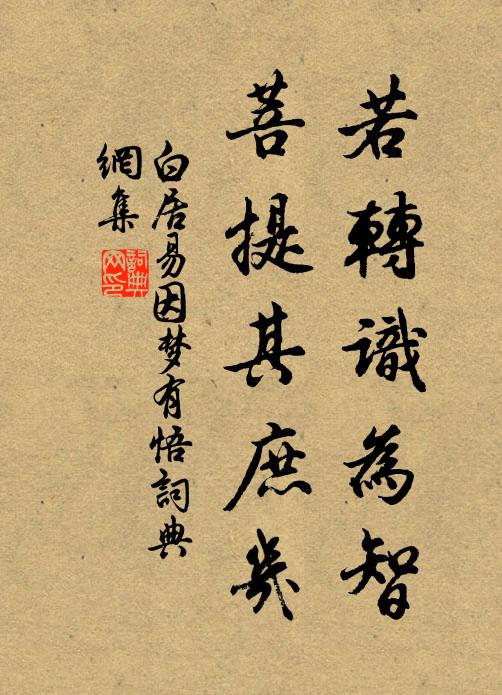 若轉識為智
菩提其庶幾
白居易因梦有悟詞典
網集
詞典
网印